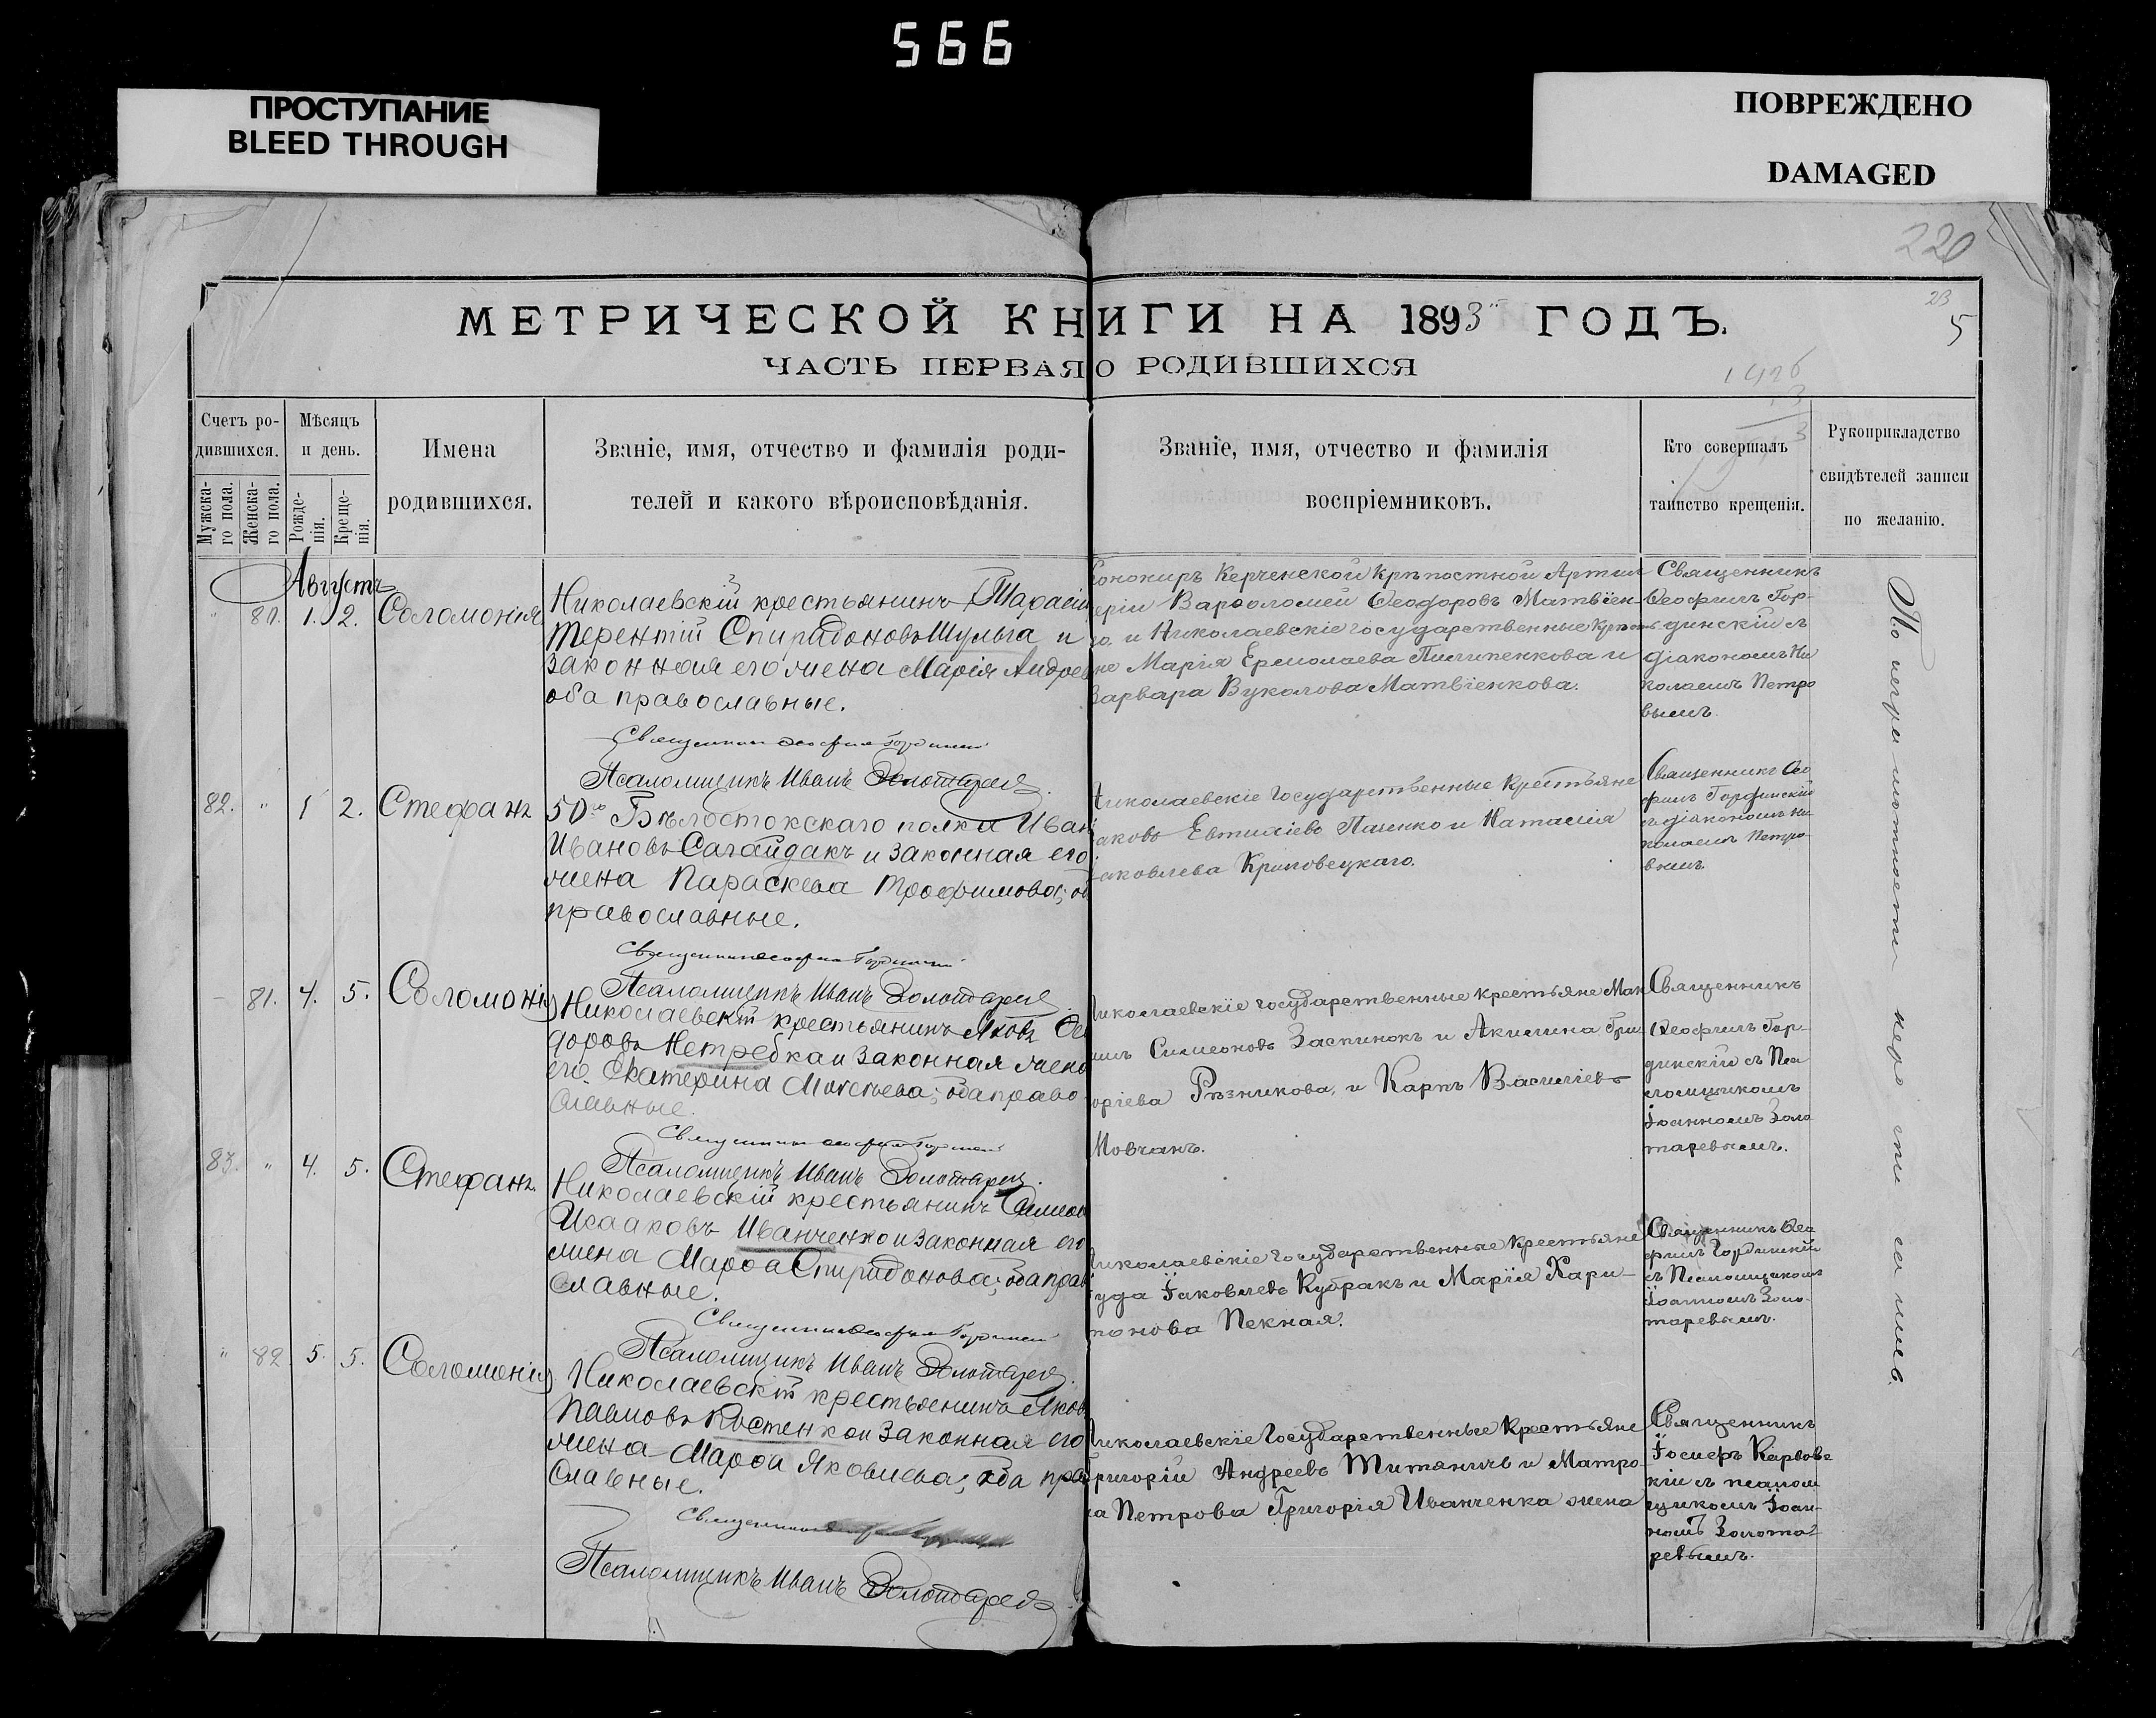 566
ПРОСТУПАНИЕ
BLEED THROUGH
ПОВРЕЖДЕНО
DAMAGED
220
23
5
МЕТРИЧЕСКОЙ КНИГИ НА 1893 ГОДЪ.
ЧАСТЬ ПЕРВАЯ О РОДИВШИХСЯ
Счетъ ро-
дившихся.
Мужска-
го пола.
Женска-
го пола.
Мѣсяцъ
и день.
Рожде-
нія.
Креще-
нія.
Имена
родившихся.
Званіе, имя, отчество и фамилія роди-
телей и какого вѣроисповѣданія.
Званіе, имя, отчество и фамилія
воспріемниковъ.
Кто совершалъ
таинство крещенія.
Рукоприкладство
свидѣтелей записи
по желанію.
Августъ
" 80. 1. 2. Соломонія
Николаевскій крестьянинъ
Терентій Спиридоновъ Шульга и
законная его жена Марія Андрее
оба православные.
Священникъ Ѳеофилъ Гординскій
Псаломщикъ Иванъ Золотарев
Керченской крѣпостной Артил
еріи Варѳоломей Ѳеодоровъ Матвіен-
ко, и Николаевскіе государственные крестья
не Марія Ермолаева Пилипенкова и
Варвара Вуколова Матвіенкова.
Священникъ
Ѳеофилъ Гор-
динскій съ
діакономъ Ни
колаемъ Петро
вымъ.
82. " 1 2. Стефанъ
50го Бѣлостокскаго полка Иван
Ивановъ Сагайдакъ и законная его
жена Параскева Трофимова; об
православные.
Священникъ Ѳеофилъ Гординскій
Псаломщикъ Иванъ Золотарев
Николаевскіе государственные крестьяне
Іаковъ Евтихіевъ Паценко и Наталія
Іаковлева Криповецкаго.
Священникъ Ѳео
филъ Гординскій
съ діакономъ Ни
колаемъ Петро-
вымъ.
81. 4. 5. Соломонія
Николаевскій крестьянинъ Яковъ Ѳе
доровъ Нетребка и законная жена
его Екатерина Моисеева; оба право
славные.
Священникъ Ѳеофилъ Гординскій
Псаломщикъ Иванъ Золотарев
Николаевскіе государственные крестьяне Мак
имъ Симеоновъ Заспинокъ и Акилина Гри
горіева Рѣзникова, и Карпъ Василіевъ
Мовчанъ.
Священникъ
Ѳеофилъ Гор-
динскій съ Пса
ломщикомъ
Іоанномъ Золо
таревымъ.
83. " 4. 5. Стефанъ.
Николаевскій крестьянинъ Симеон
Исааковъ Иванченко и законная его
жена Марѳа Спиридонова; оба прав
славные.
Священникъ Ѳеофилъ Гординскій
Псаломщикъ Иванъ Золотарев
Николаевскіе государственные крестьяне
Іуда Іаковлевъ Кубракъ и Марія Хари-
тонова Пекная.
Священникъ Ѳео
филъ Гординскій
съ Псаломщикомъ
Іоанномъ Золо-
таревымъ.
" 82 5. 5. Соломонія
Николаевскій крестьянинъ Яков
Павловъ Костенко и законная его
жена Марѳа Яковлева; оба пра
славные.
Священникъ
Псаломщикъ Иванъ Золотарев
Николаевскіе государственные крестьяне
Григорій Андреевъ Титяничъ и Матро
на Петрова Григорія Иванченка жена
Священникъ
Іосифъ Карвовс
кій съ псалом
щикомъ Іоан-
номъ Золота-
ревымъ.
По неграмотности